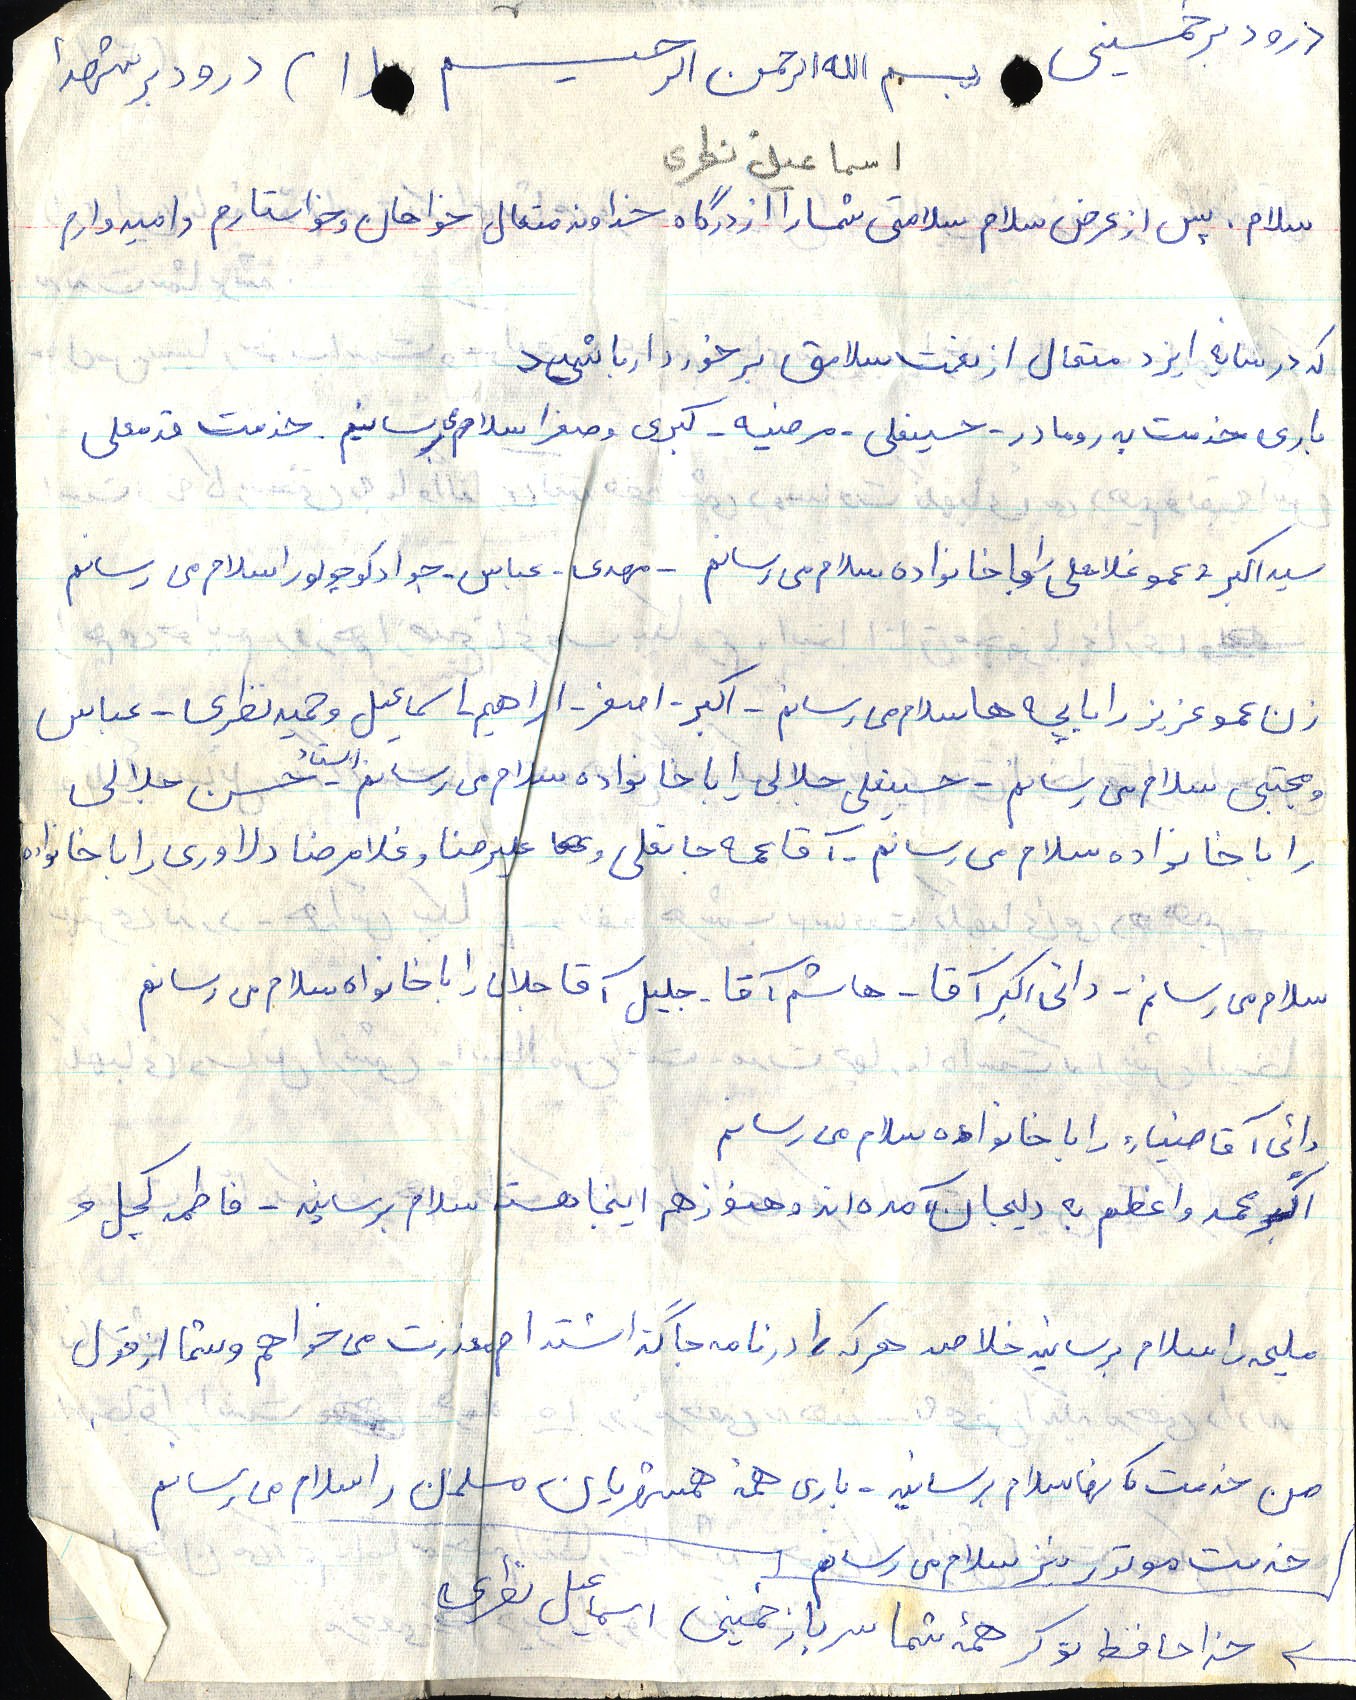 درود بر خمینی بسم الله الرحمن الرحیم (۱) درود بر شهدا
اسماعیل نظری
سلام. پس از عرض سلام سلامتی شما را از درگاه خداوند متعال خواهان و خواستارم و امیدوارم
که در سایه ایزد متعال از نعمت سلامتی برخوردار باشید
باری خدمت پدر و مادر - حسینعلی - مرضیه - کبری و صغرا سلام می‌رسانیم. خدمت قدمعلی
سید اکبر و عمو غلامعلی را با خانواده سلام می رسانم - مهدی - عباس - جواد کوچولو را سلام می رسانم
زن عمو عزیز را با بچه ها سلام می رسانم - اکبر - اصغر - ابراهیم - اسماعیل و حمید نظری - عباس
و مجتبی سلام می رسانم - حسینعلی جلالی را با خانواده سلام می رسانم - استاد حسن جلالی
را با خانواده سلام می رسانم - آقا عمه جانعلی و علیرضا و غلامرضا دلاوری را با خانواده
سلام می رسانم - دائی اکبر آقا - هاشم آقا - جلیل آقا جلالی را با خانواه سلام می رسانم
دائی آقا ضیاء را با خانواده سلام می رسانم
اگر محمد و اعظم به دلیجان آمده اند و هنوز هم اینجا هستند سلام برسانید - فاطمه کچل و
ملیحه را سلام برسانید خلاصه هر که را در نامه جا گذاشته ام معذرت می خواهم و شما از قول
من خدمت آنها سلام برسانید - باری همهٔ همشهریان مسلمان را سلام می رسانم
خدمت موتور نیز سلام می رسانم
خداحافظ نوکر همهٔ شما سرباز خمینی اسماعیل نظری